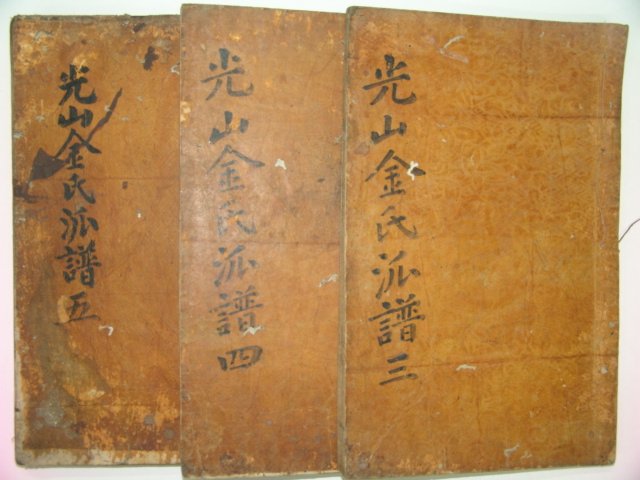 光山金氏派譜 三
光山金氏派譜 四
光山金氏派譜 五